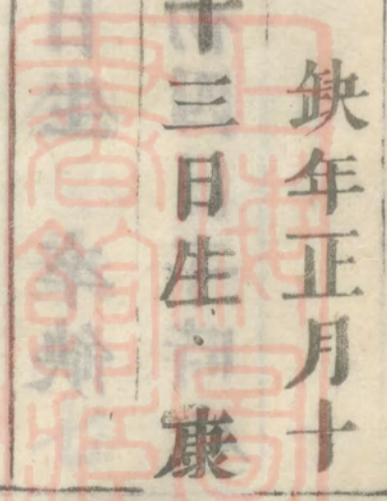 缺年正月十
十三日生康